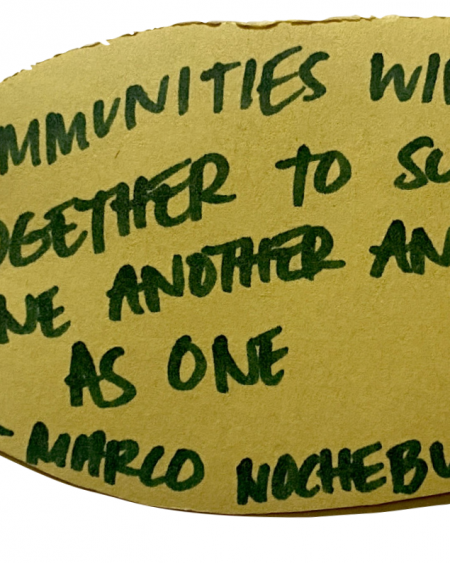 MMUNITIES WI
OGETHER TO SU
NE ANOTHER AN
AS ONE
- MARCO NOCHEBU